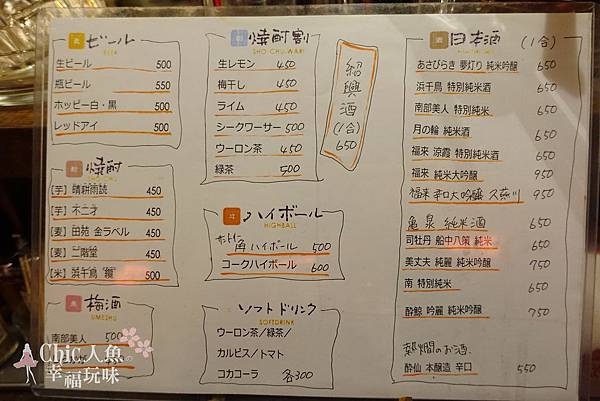 ビール
BEER
生ビール 500
瓶ビール 550
ホッピー白・黒 500
レッドアイ 500
焼酎
【芋】晴耕雨読 450
【芋】不二才 450
【麦】田苑 金ラベル 450
【麦】二階堂 450
【米】浜千鳥 鑁 500
梅酒
UMESHU
南部美人 500
焼酎割
SHO-CHU-WARI
生レモン 450
梅干し 450
ライム 450
シークワーサー 500
ウーロン茶 450
緑茶 500
紹興酒(1合) 650
ハイボール
HIGHBALL
角ハイボール 500
コークハイボール 600
ソフトドリンク
SOFTDRINK
ウーロン茶／緑茶／
カルピス／トマト
コカコーラ 各300
日本酒 (1合)
あさびらき 夢灯り 純米吟醸 650
浜千鳥 特別純米酒 650
南部美人 特別純米 650
月の輪 純米酒 650
福来 涼霞 特別純米酒 650
福来 純米大吟醸 950
福来 辛口大吟醸 久慈川 950
亀泉 純米酒 650
司牡丹 船中八策 純米 650
美丈夫 純麗 純米吟醸 750
南 特別純米 650
酔鯨 吟麗 純米吟醸 750
熱燗のお酒
酔仙 本醸造 辛口 550
Chic人魚の
幸福玩味